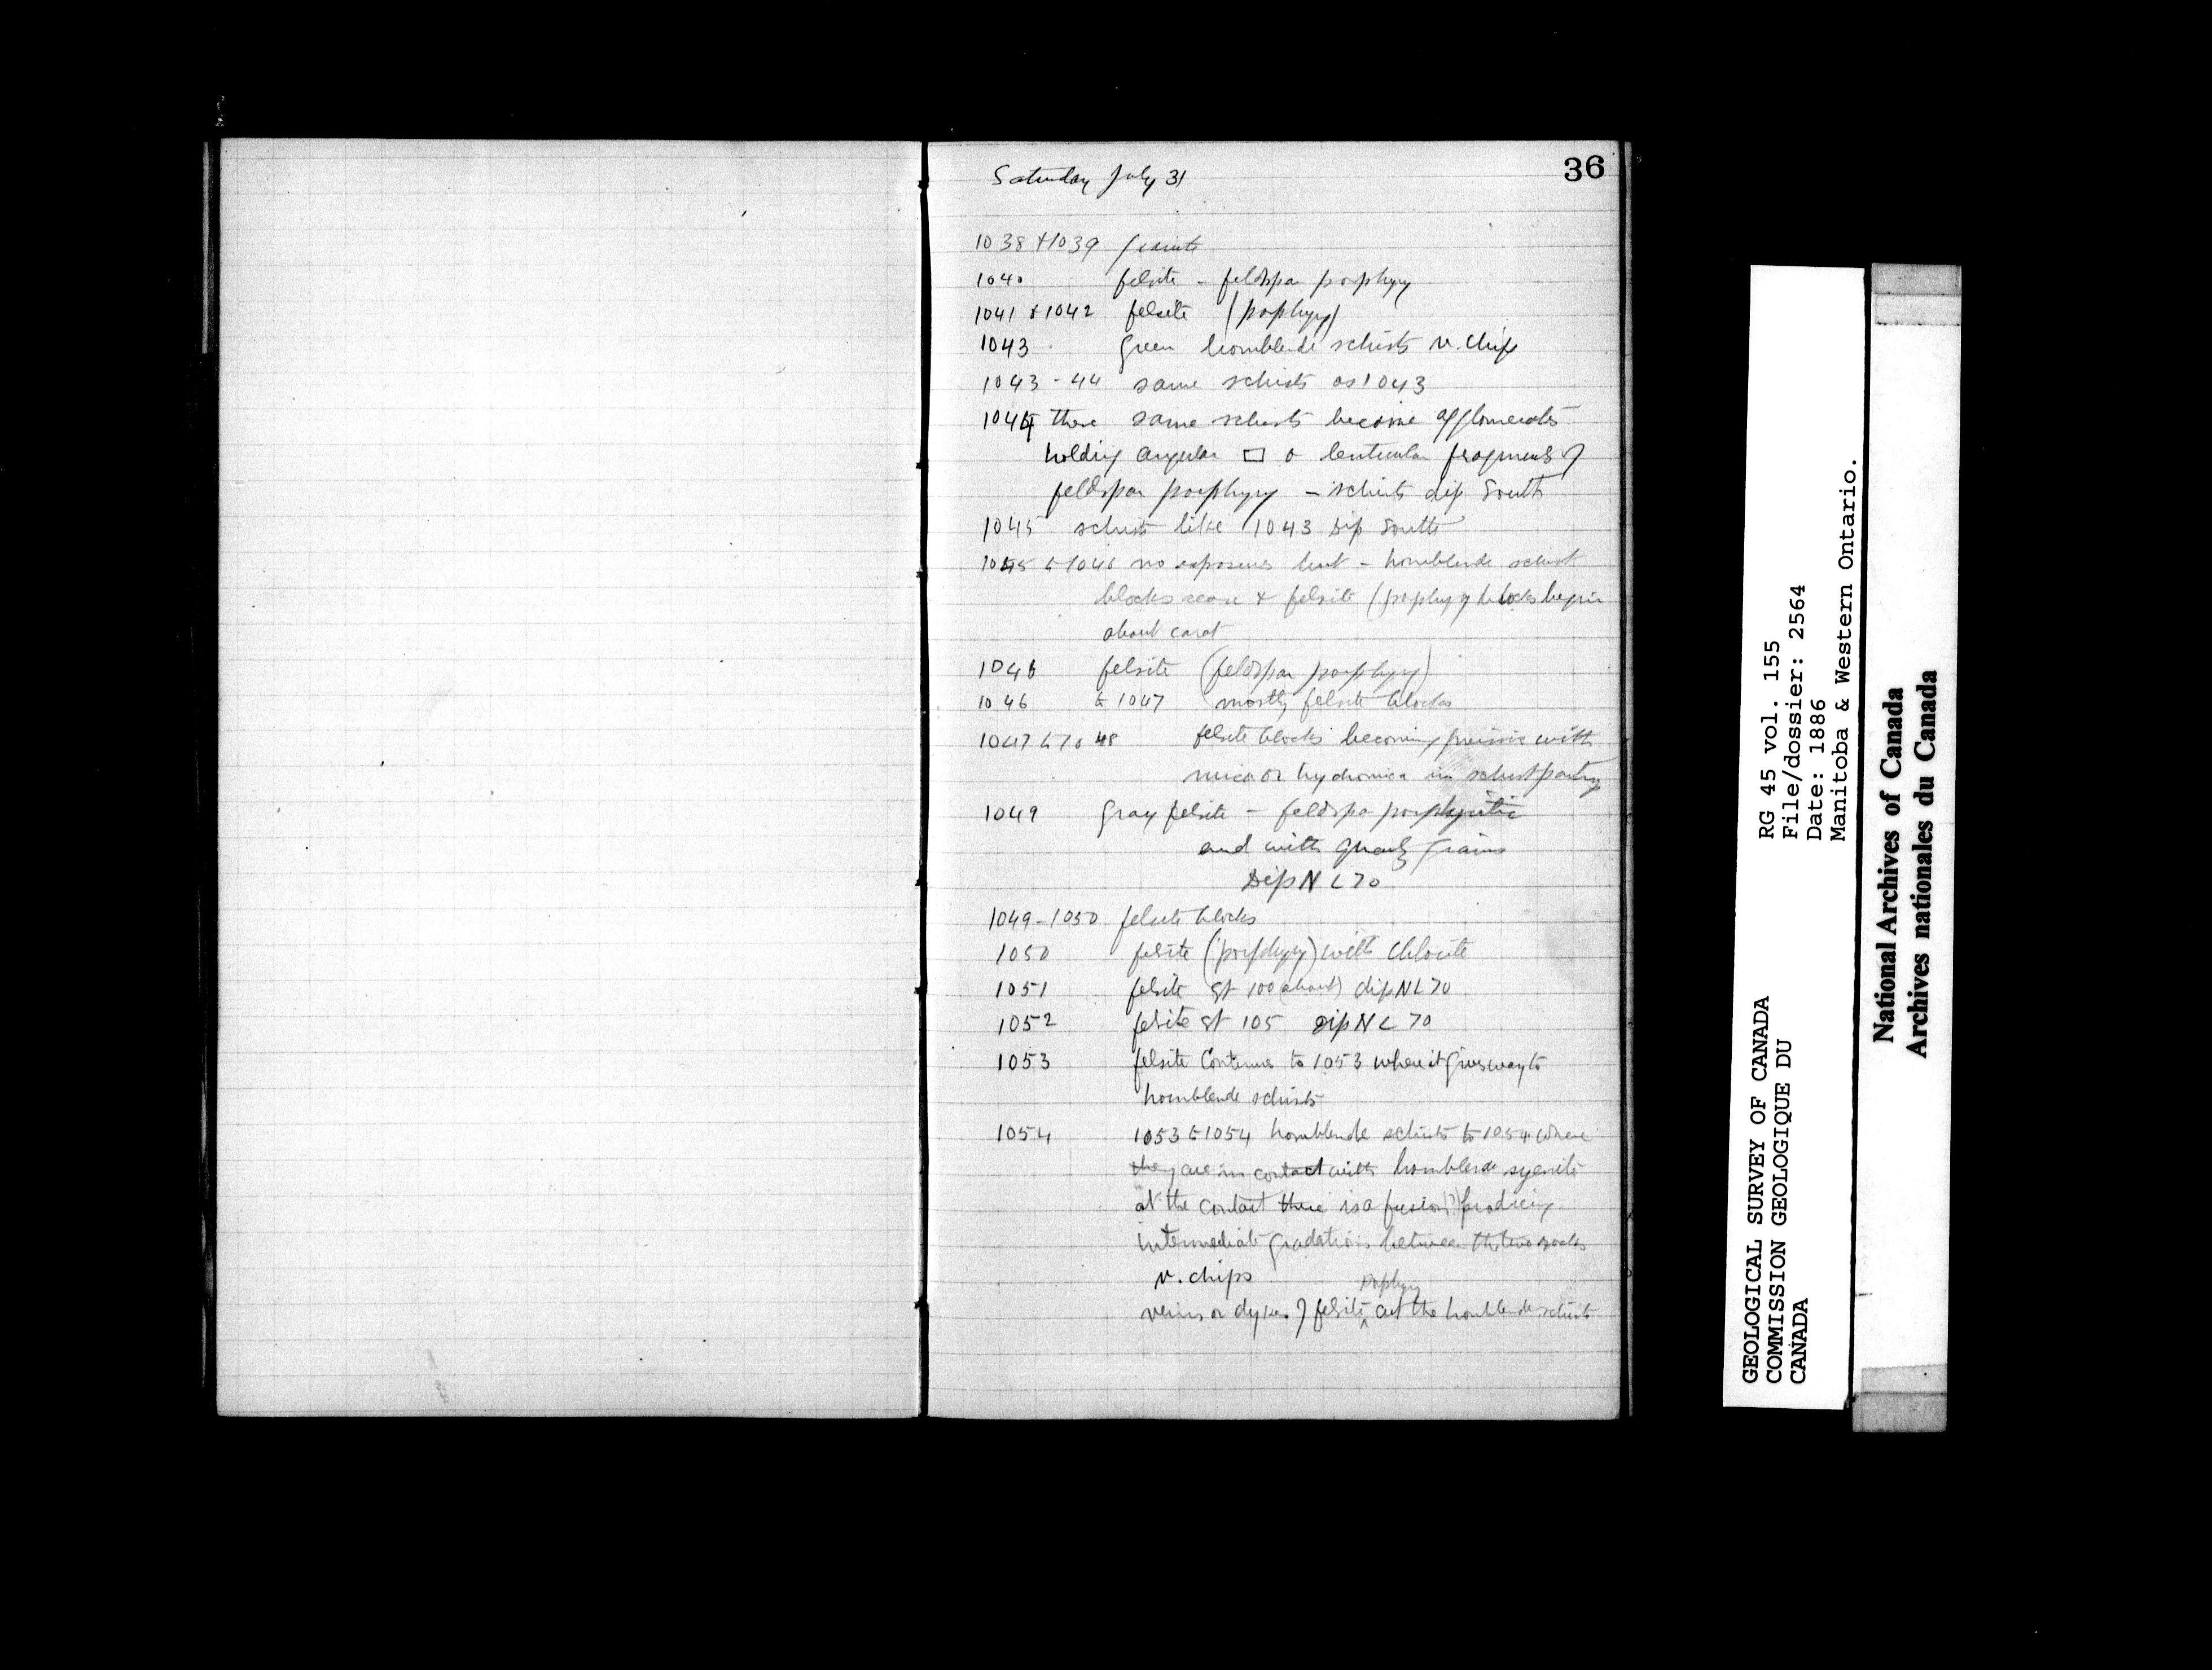 36
Saturday July 31
1038 & 1039 granite
1040 felsite - feldspar porphyry
1041 & 1042 felsite (porphyry)
1043 green hornblende schists v. chip
1043 - 44 same schists as 1043
1044 these same schists become agglomerates
holding angular ▭ or lenticular fragments of
feldspar porphyry - schists dip South
1045 schists like 1043 Dip South
1045 to 1046 no exposures but - hornblende schist
blocks cease & felsite (porphyry) blocks begin
about
1046 felsite (feldspar porphyry)
1046 to 1047 mostly felsite blocks
1047 to 1048 felsite blocks becoming gneissic with
mica or hydromica in schist parting
1049 Gray felsite - feldspar porphyritic
and with quartz grains
Dip N L 70
1049 - 1050 felsite blocks
1050 felsite (porphyry) with chlorite
1051 felsite St 100 (about) dip N L 70
1052 felsite St 105 dip N L 70
1053 felsite continues to 1053 where it gives way to
hornblende schists
1054 1053 to 1054 hornblende schists to 1054 where
they are in contact with hornblende syenite
at the contact there is a fusion (?) producing
intermediate gradations between the two rocks
v. chips
porphyry
veins or dykes of felsite ^ cut the hornblende schists
GEOLOGICAL SURVEY OF CANADA
COMMISSION GEOLOGIQUE DU
CANADA
RG 45 vol. 155
File/dossier: 2564
Date: 1886
Manitoba & Western Ontario.
National Archives of Canada
Archives nationales du Canada